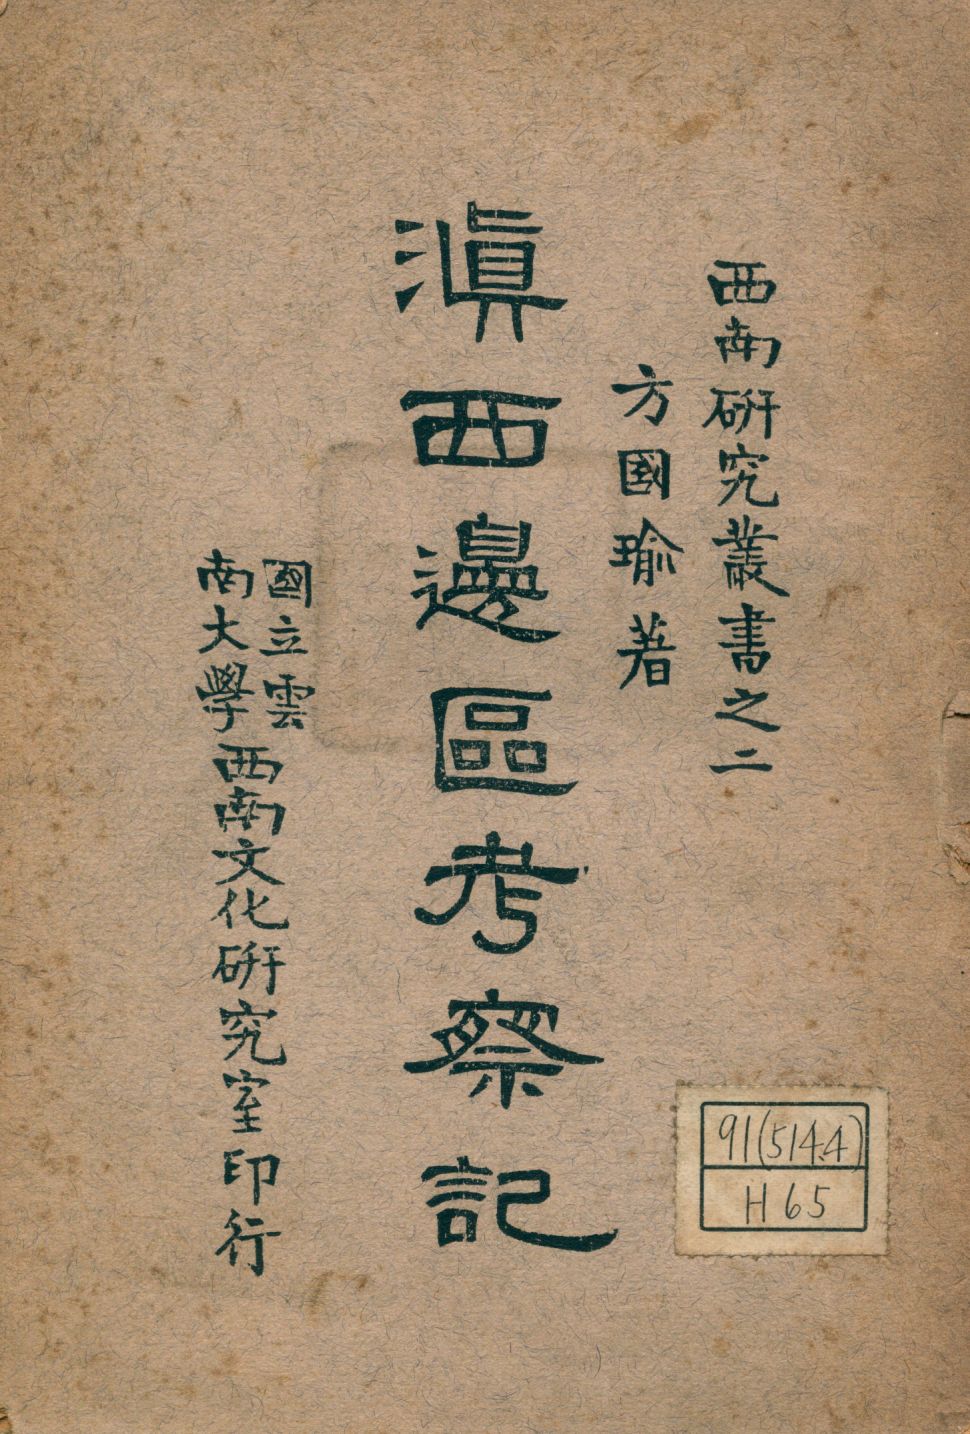 西南研究叢書之二
方國瑜著
滇西邊區考察記
國立雲
南大學
西南文化研究室印行
91(514.4)
H65